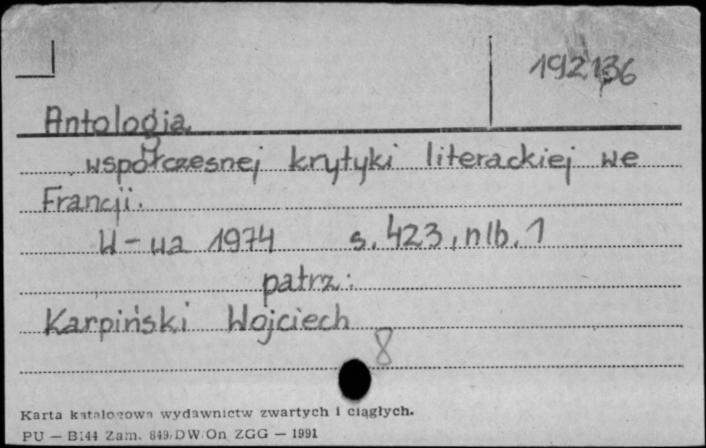 192136
Antologia
współczesnej krytyki literackiej we
Francji.
W-wa 1974 s. 423, nlb. 1
patrz:
Karpiński Wojciech
8
Karta katalogowa wydawnictw zwartych i ciągłych.
PU — B144 Zam. 849/DW/On ZGG — 1991